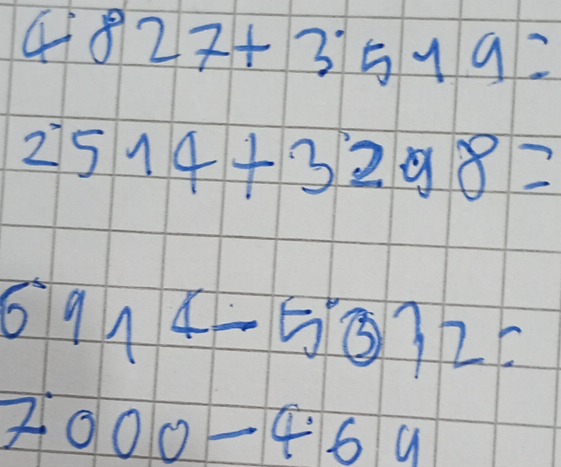 4·827+3·519=
2·514+3·298=
6·914-5·372=
7·000-4·69